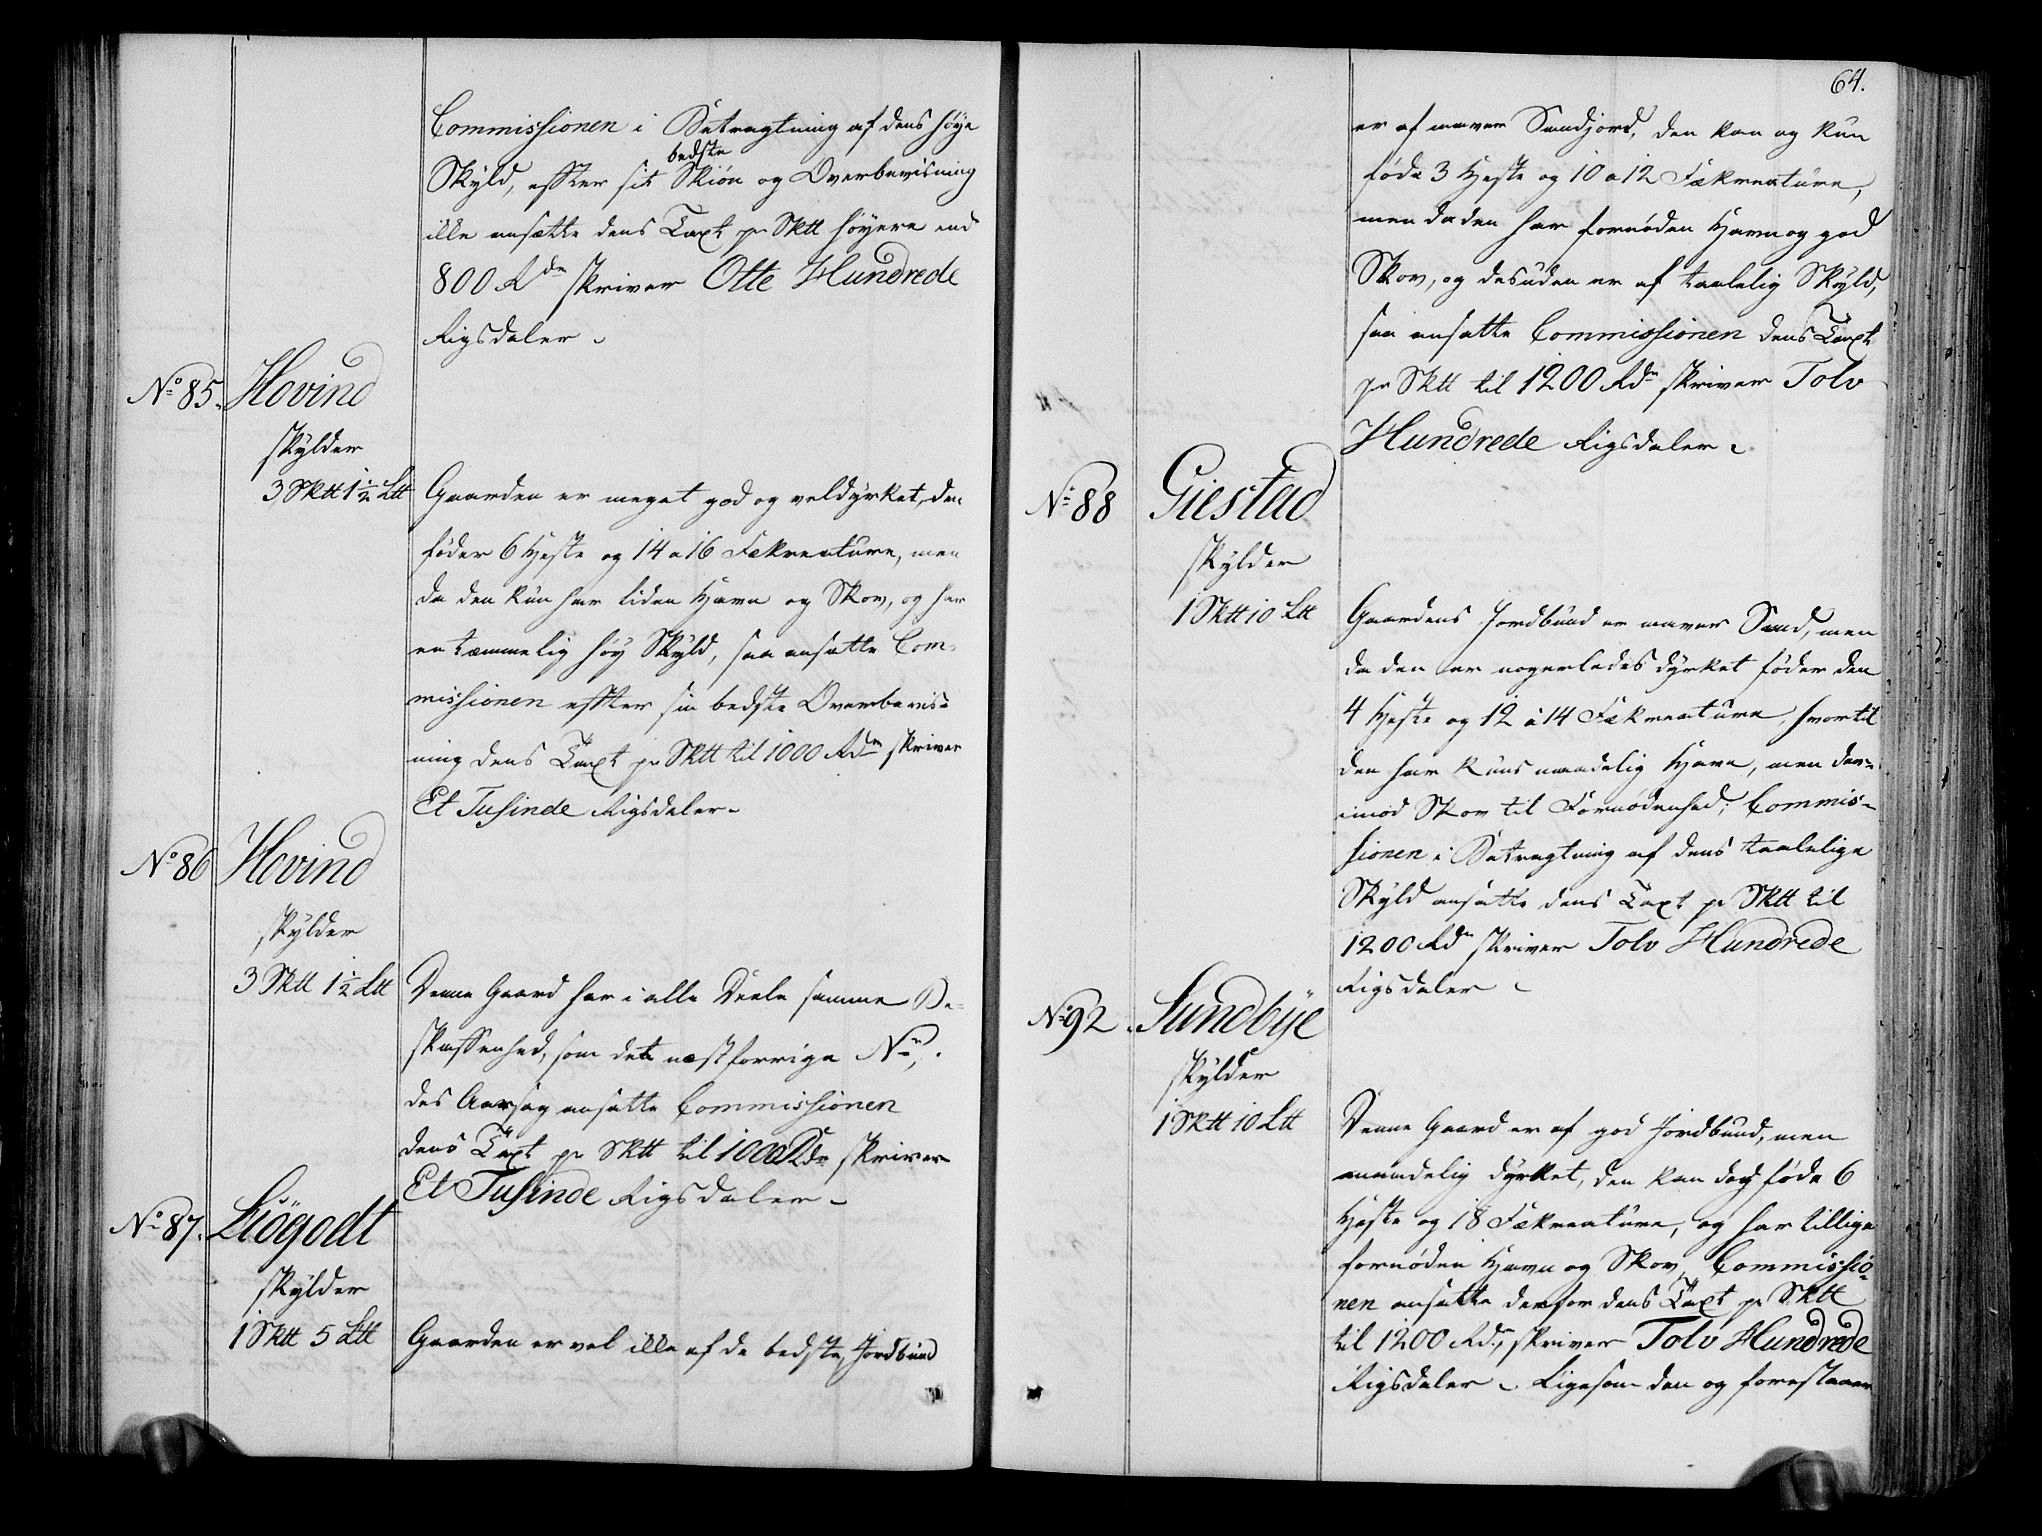 Commissionen i Betragtning af dens høye
Skyld, effter sit bedste Skiøn og Overbeviisning
ikke ansætte dens Taxt pr Sktt høyere end
800 Rdr skriver Otte Hundrede
Rigsdaler.
No 85. Hovind
skylder
3 Sktt 1½ Ltt
Gaarden er meget god og veldyrket, den
føder 6 Heste og 14 a 16 Fækreature, men
da den kun har liden Havn og Skov, og har
en temmelig høy Skyld, saa ansatte Com-
missionen effter sin bedste Overbeviis-
ning dens Taxt pr Sktt til 1000 Rdr skriver
Et Tusinde Rigsdaler.
No 86 Hovind
skylder
3 Sktt 1½ Ltt
Denne Gaard har i alle Deele samme Be-
skaffenhed, som det næstforrige No,
des Aarsag ansatte Commissionen
dens Taxt pr Sktt til 1000 Rdr skriver
Et Tusinde Rigsdaler.
No 87. Liögodt
skylder
1 Sktt 5 Ltt
Gaarden er vel ikke af de bedste, Jordbund
64.
er af maver Sandjord, den kan og kun
føde 3 Heste og 10 a 12 Fækreature,
men da den har fornøden Havn og god
Skov, og desuden er af taalelig Skyld,
saa ansatte Commissionen dens Taxt
pr Sktt til 1200 Rdr skriver Tolv
Hundrede Rigsdaler.
No 88 Giestad
skylder
1 Sktt 10 Ltt
Gaardens Jordbund er maver Sand, men
da den er nogenledes dyrket føder den
4 Heste og 12 à 14 Fækreature, hvortil
den har kuns maadelig Havn, men der-
imod Skov til Fornødenhed; Commis-
sionen i Betragtning af dens taalelige
Skyld ansatte dens Taxt pr Sktt til
1200 Rdr skriver Tolv Hundrede
Rigsdaler.
No 92. Sundbÿe
skylder
1 Sktt 10 Ltt
Denne Gaard er af god Jordbund, men
maadelig dyrket, den kan dog føde 6
Heste og 18 Fækreature, og har tillige
fornøden Havn og Skov, Commissio-
nen ansatte derfor dens Taxt pr Sktt
til 1200 Rdr, skriver Tolv Hundrede
Rigsdaler. Ligesom den og forestaaer